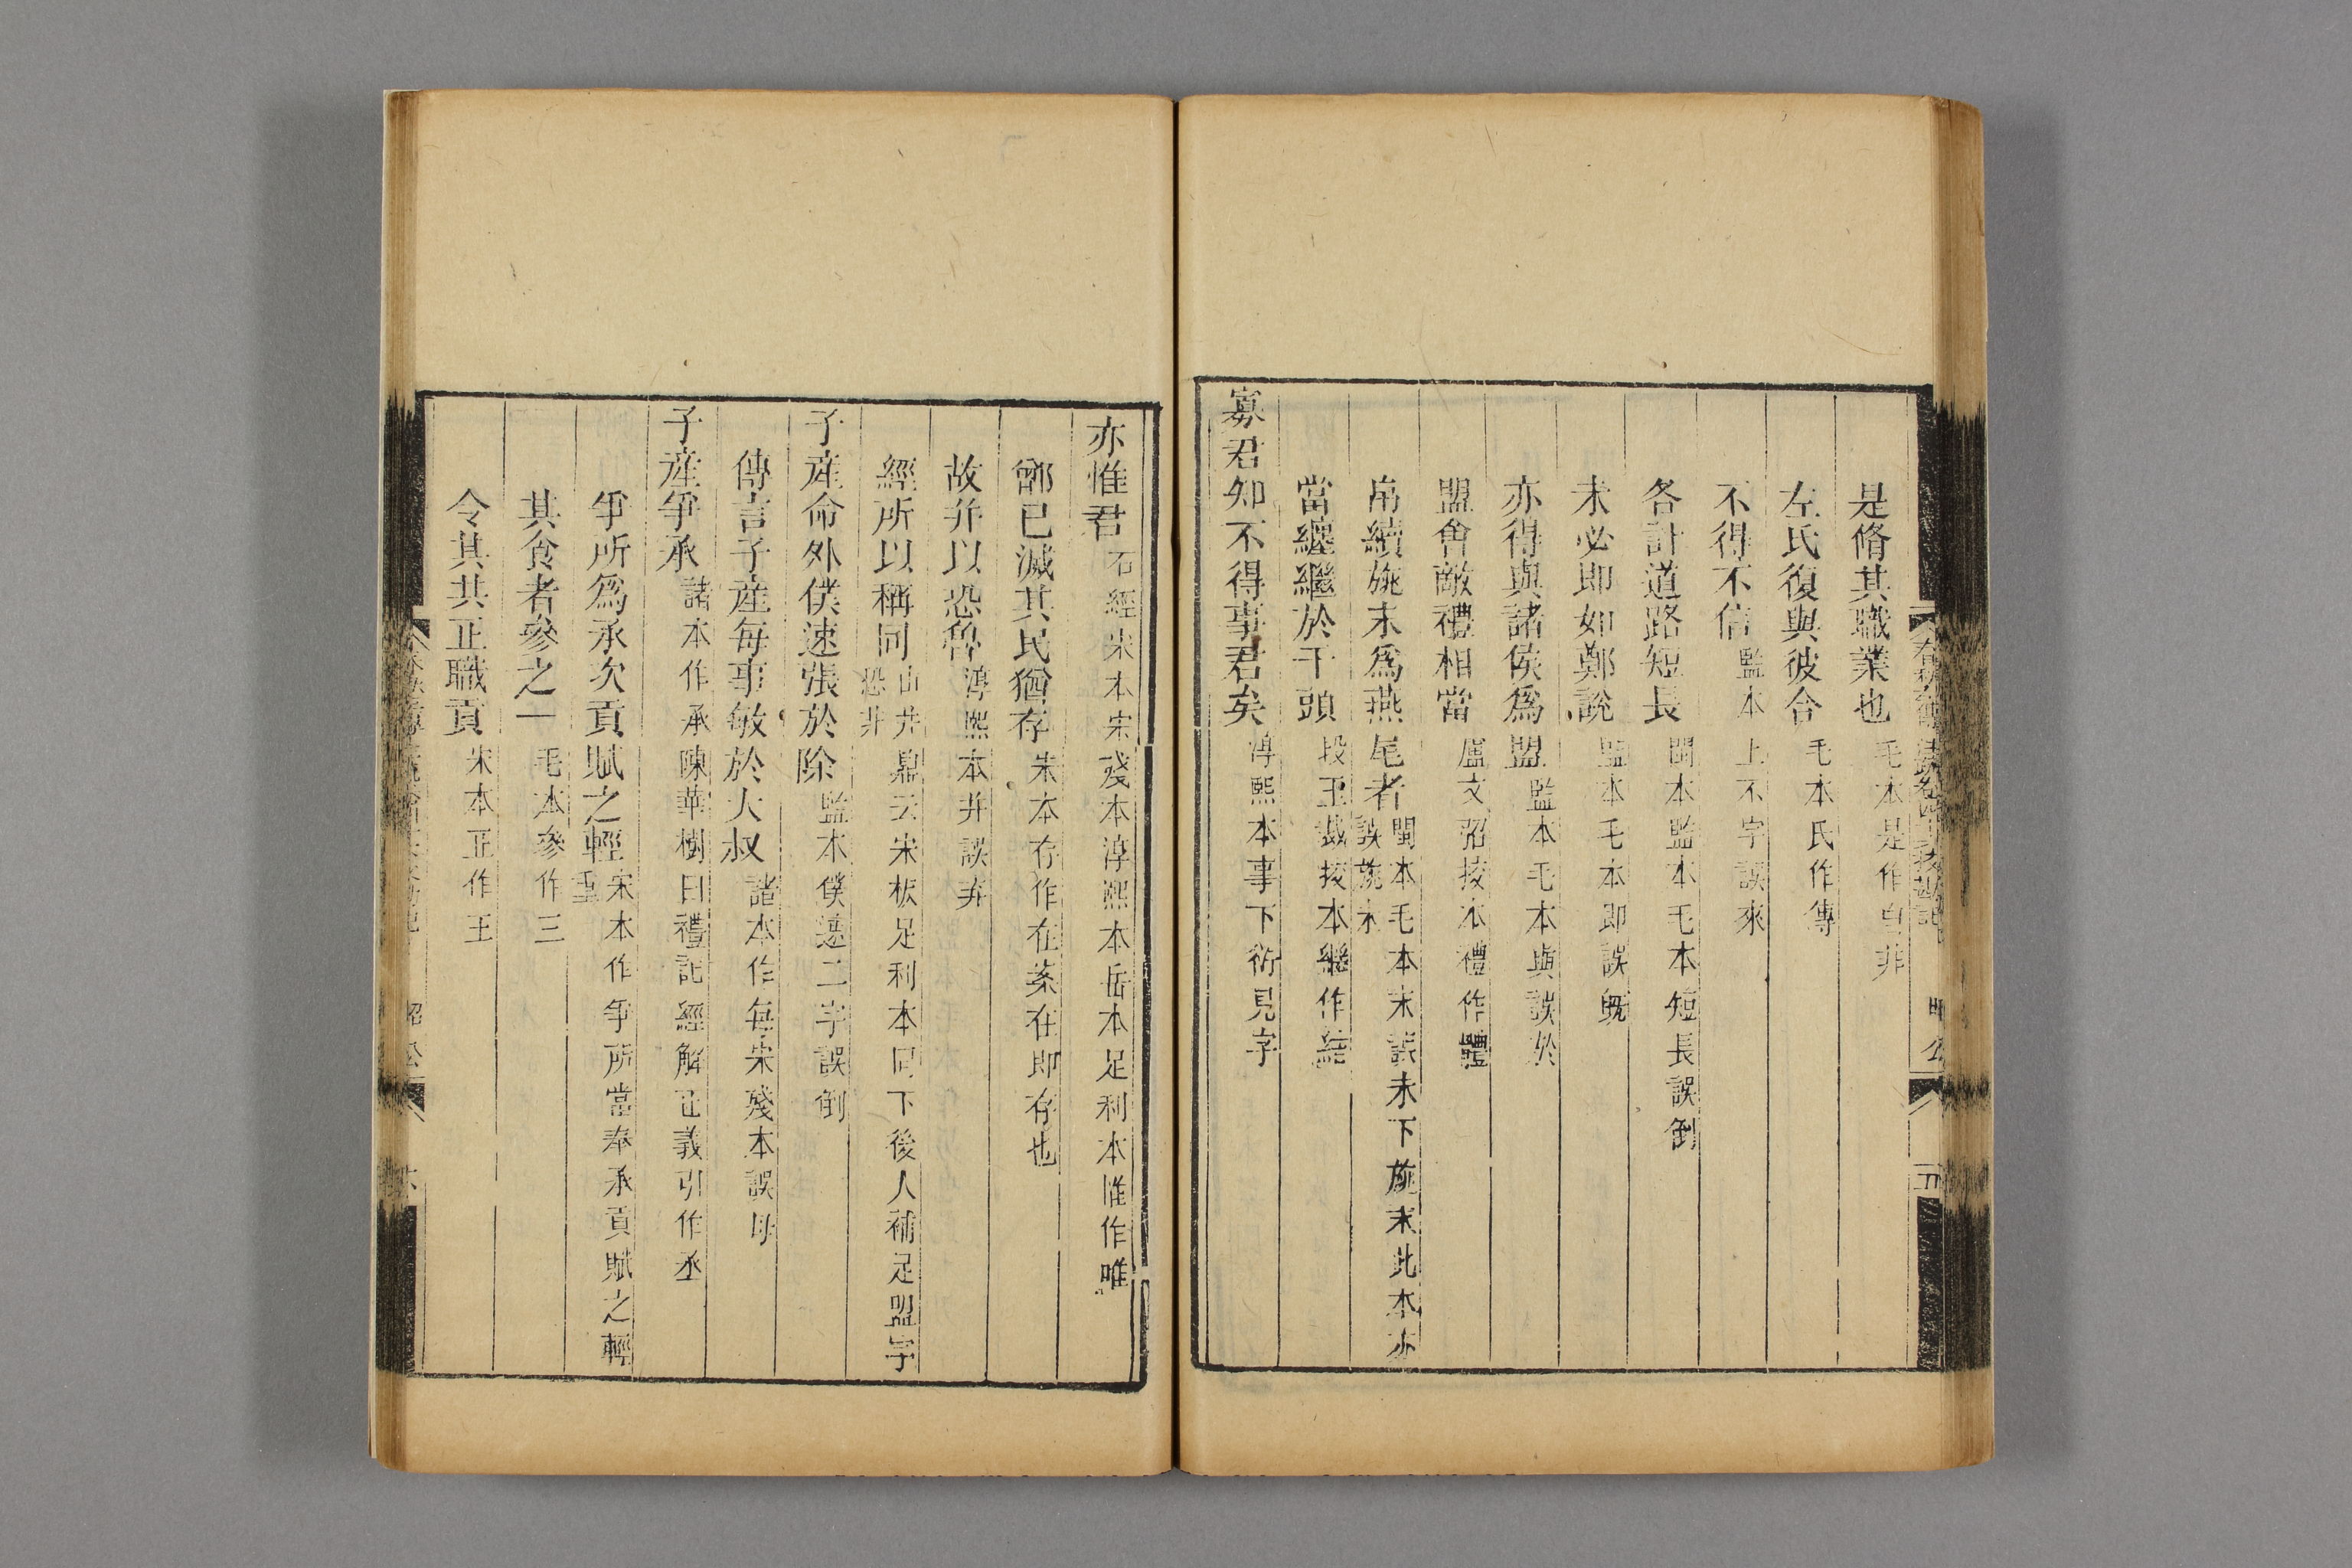 是脩其職業也毛本是作自非
左氏復與彼合毛本氏作傳
不得不信監本上不字誤來
各計道路短長閩本監本毛本短長誤倒
未必即如鄭說監本毛本即誤既
亦得與諸侯爲盟監本毛本與誤於
盟會敵禮相當盧文弨挍本禮作體
帛續旐末爲燕尾者閩本毛本末誤未下旐末此本亦誤旐未
當纏繼於干頭段玉裁挍本繼作結
寡君知不得事君矣淳熙本事下衍見字
昭公
五
亦惟君石經宋本宋殘本淳熙本岳本足利本惟作唯
鄫已滅其民猶存宋本存作在案在即存也
故并以恐魯淳熙本并誤弃
經所以稱同山井鼎云宋板足利本同下後人補足盟字恐非
子產命外僕速張於除監本僕速二字誤倒
傳言子產每事敏於大叔諸本作每宋殘本誤母
子產爭承諸本作承陳華樹曰禮記經解正義引作丞
爭所爲承次貢賦之輕宋本作爭所當奉承貢賦之輕重
其食者參之一毛本參作三
令其共正職貢宋本正作王
昭公
六